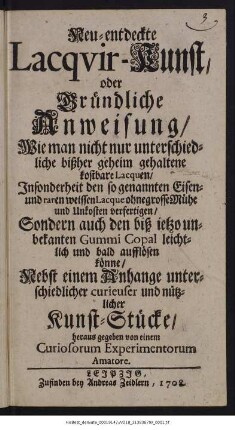 3
Neu-entdeckte
Lacqvir-Kunst/
oder
Gründliche
Anweisung/
Wie man nicht nur unterschied-
liche bißher geheim gehaltene
kostbare Lacquen/
Insonderheit den so genannten Eisen-
und raren weissen Lacque ohne grosse Mühe
und Unkosten verfertigen/
Sondern auch den biß ietzo un-
bekanten Gummi Copal leicht-
lich und bald aufflösen
könne/
Nebst einem Anhange unter-
schiedlicher curieuser und nütz-
licher
Kunst-Stücke/
heraus gegeben von einem
Curiosorum Experimentorum
Amatore.
LEIPZIG,
Zufinden bey Andreas Zeidlern, 1702